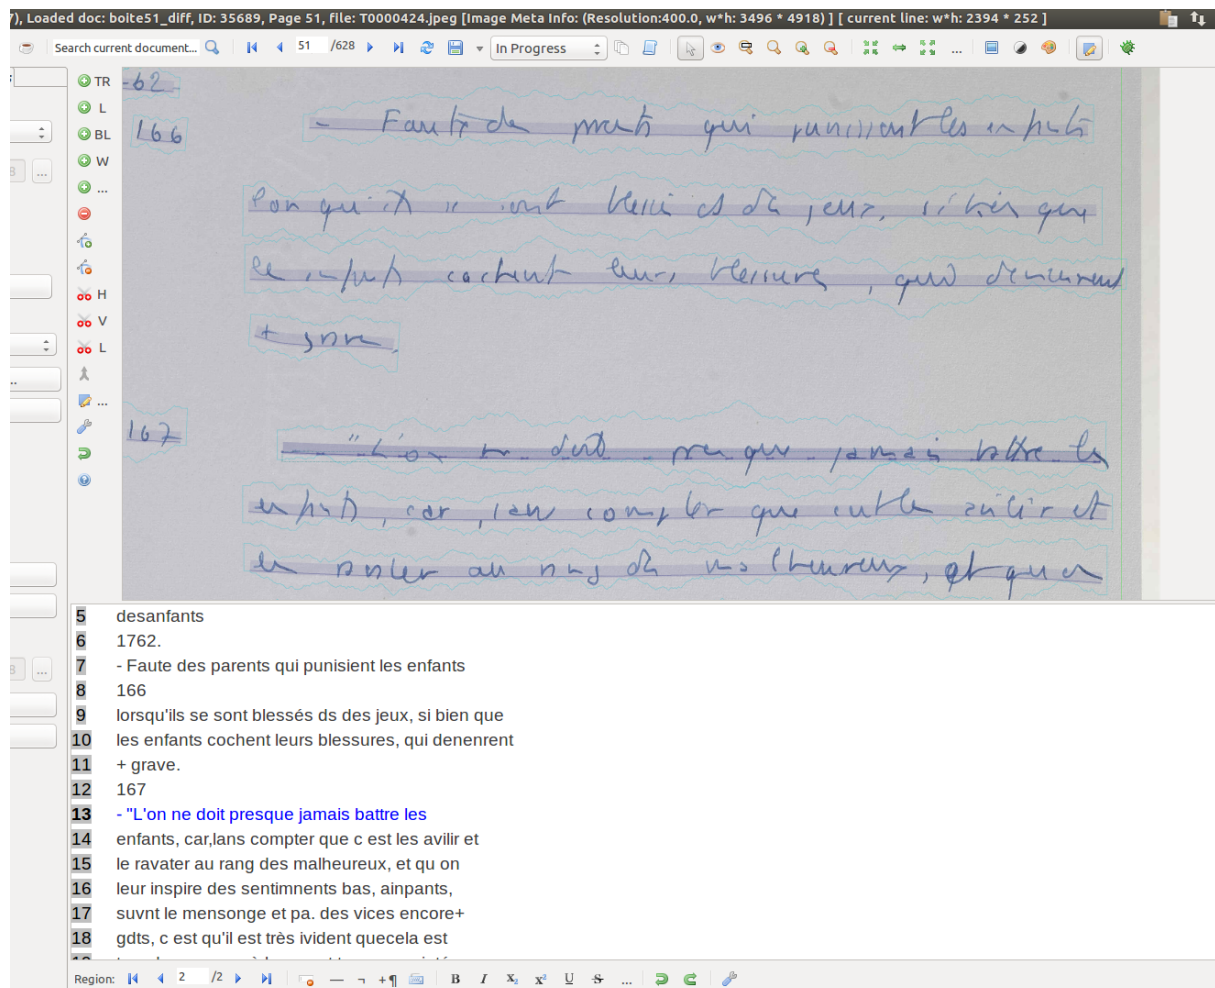 7), Loaded doc: boite51_diff, ID: 35689, Page 51, file: T0000424.jpeg [Image Meta Info: (Resolution:400.0, w*h: 3496 * 4918) ] [ current line: w*h: 2394 * 252 ]
Search current document... 51 /628 In Progress ...
TR
L
BL
W
...
H
V
L
...
-62
166 - Faute des parents qui punissent les enfants
lorsqu'ils se sont blessés ds des jeux, si bien que
les enfants cachent leurs blessures, qui deviennent
+ grave.
167 - "L'on ne doit presque jamais battre les
enfants, car, sans compter que c'est les avilir et
les au rang des malheureux, et qu'on
5 desanfants
6 1762.
7 - Faute des parents qui punisient les enfants
8 166
9 lorsqu'ils se sont blessés ds des jeux, si bien que
10 les enfants cochent leurs blessures, qui denenrent
11 + grave.
12 167
13 - "L'on ne doit presque jamais battre les
14 enfants, car,lans compter que c est les avilir et
15 le ravater au rang des malheureux, et qu on
16 leur inspire des sentimnents bas, ainpants,
17 suvnt le mensonge et pa. des vices encore+
18 gdts, c est qu'il est très ivident quecela est
Region: 2 /2 B I X₂ X² U S ...